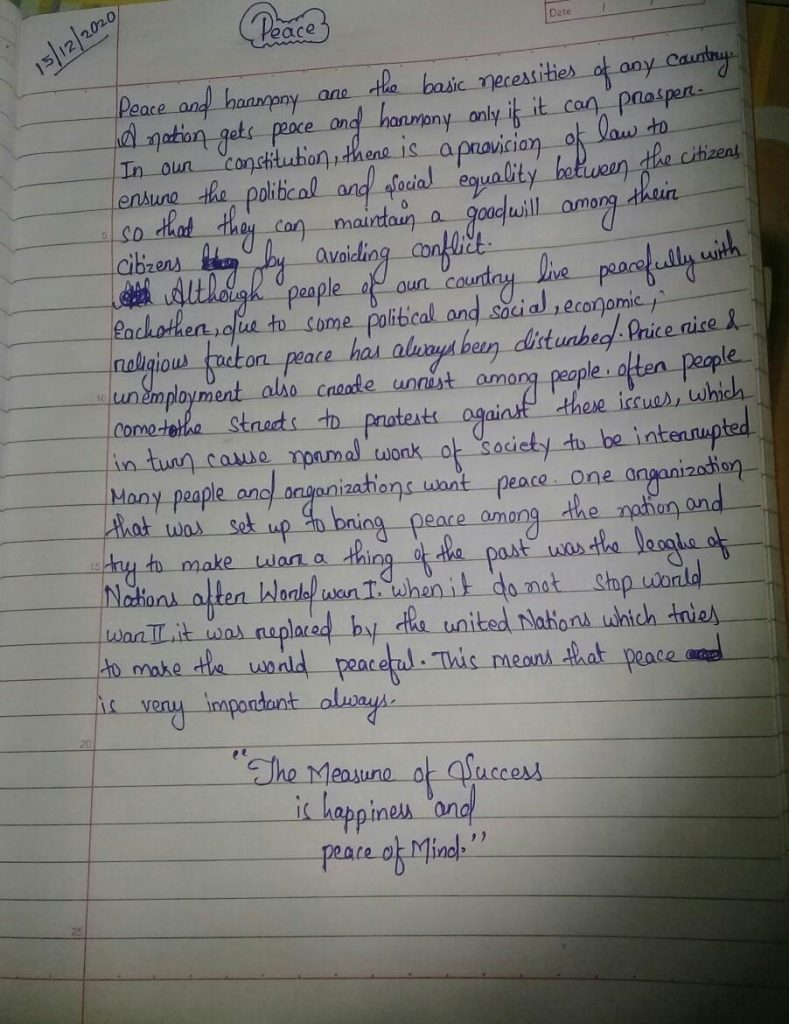 15/12/2020
Peace
Date
Peace and harmony are the basic necessities of any country.
A nation gets peace and harmony only if it can prosper.
In our constitution, there is a provision of law to
ensure the political and social equality between the citizens
5 so that they can maintain a goodwill among their
citizens by avoiding conflict.
Although people of our country live peacefully with
Eachother, due to some political and social, economic,
religious factor peace has always been disturbed. Price rise &
10 unemployment also create unrest among people. often people
come to the streets to protests against these issues, which
in turn cause normal work of society to be interrupted
Many people and organizations want peace. One organization
that was set up to bring peace among the nation and
15 try to make war a thing of the past was the league of
Nations after World war I. when it do not stop world
war II, it was replaced by the united Nations which tries
to make the world peaceful. This means that peace
is very important always.
20
"The Measure of Success
is happiness and
peace of Mind."
25